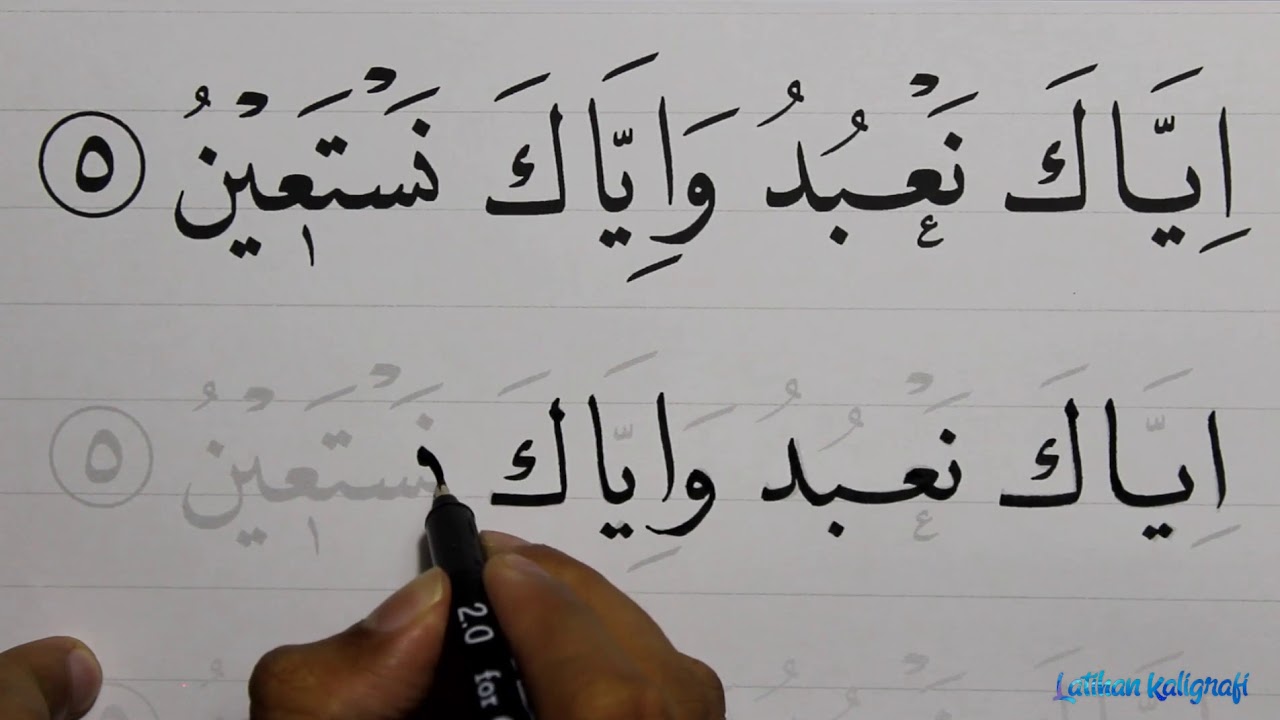 اِيَّاكَ نَعْبُدُ وَاِيَّاكَ نَسْتَعِيْنُ ۝٥
اِيَّاكَ نَعْبُدُ وَاِيَّاكَ نَسْتَعِيْنُ ۝٥
2.0 for
Latihan Kaligrafi